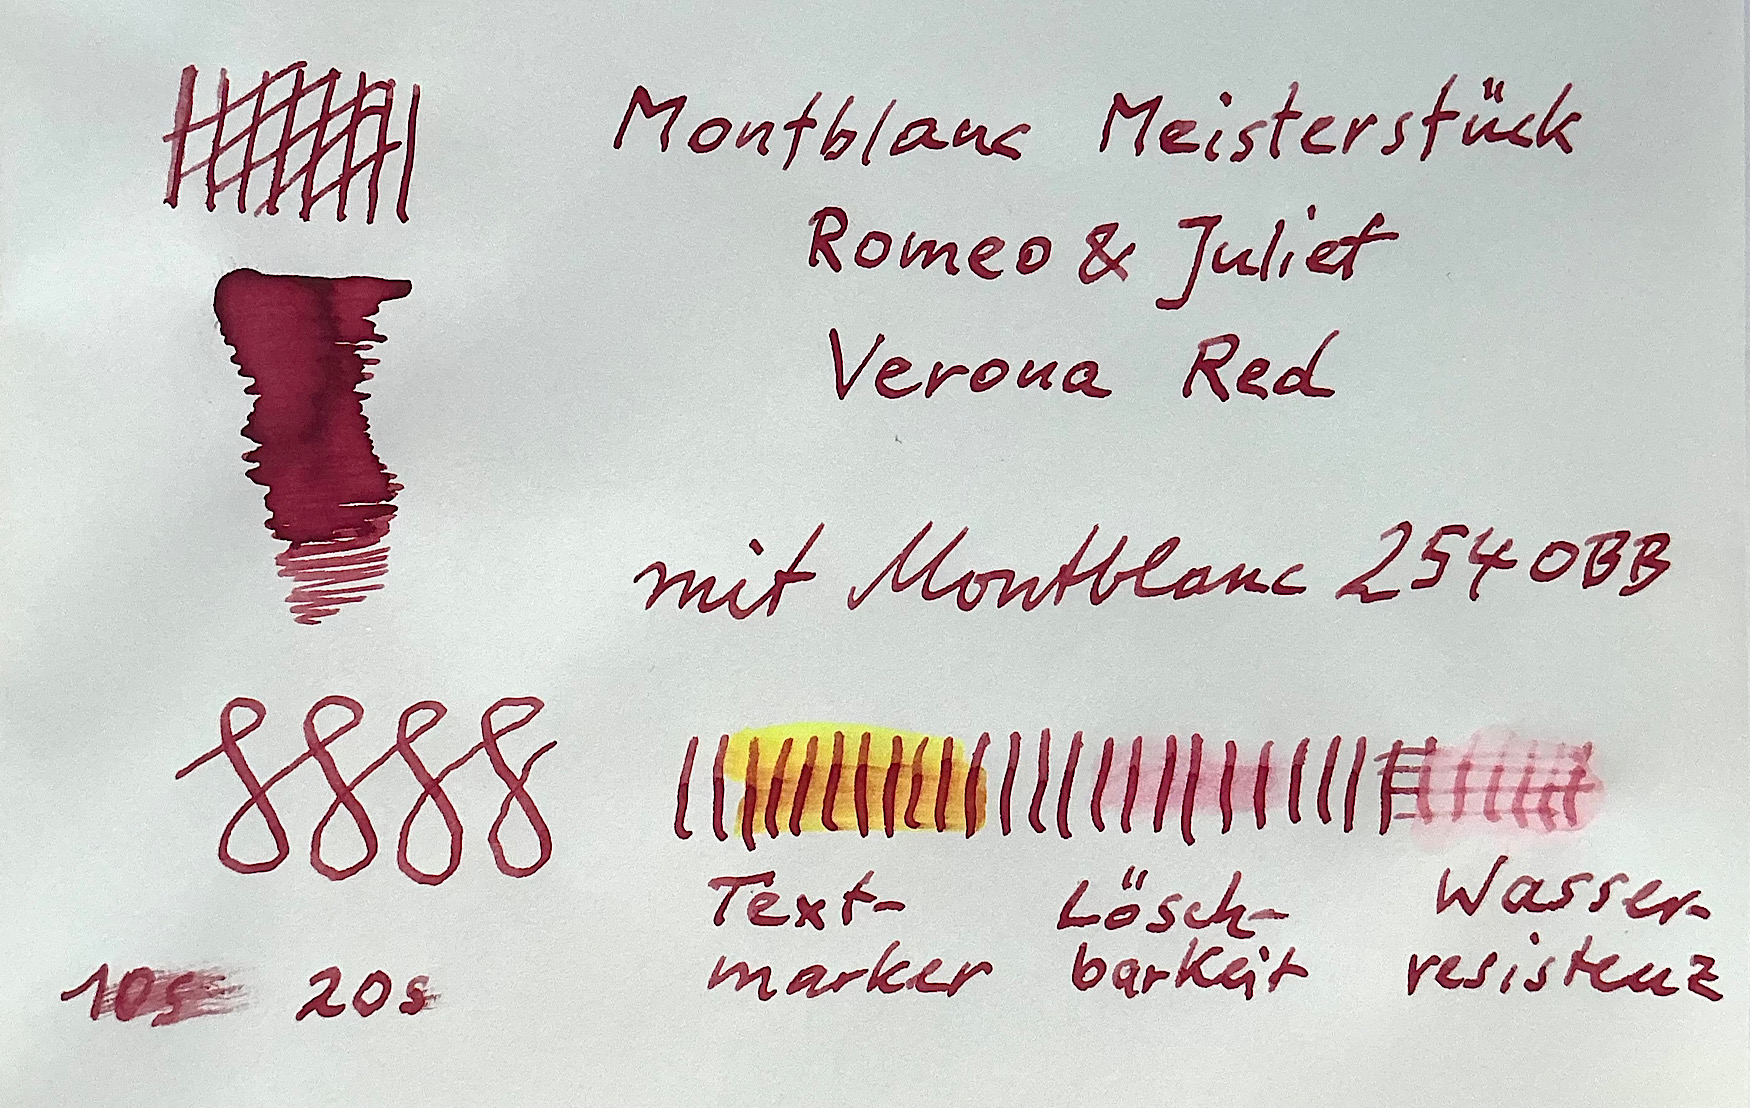 Montblanc Meisterstück
Romeo & Juliet
Verona Red
mit Montblanc 254 OBB
Text-
marker
Lösch-
barkeit
Wasser-
resistenz
10s 20s